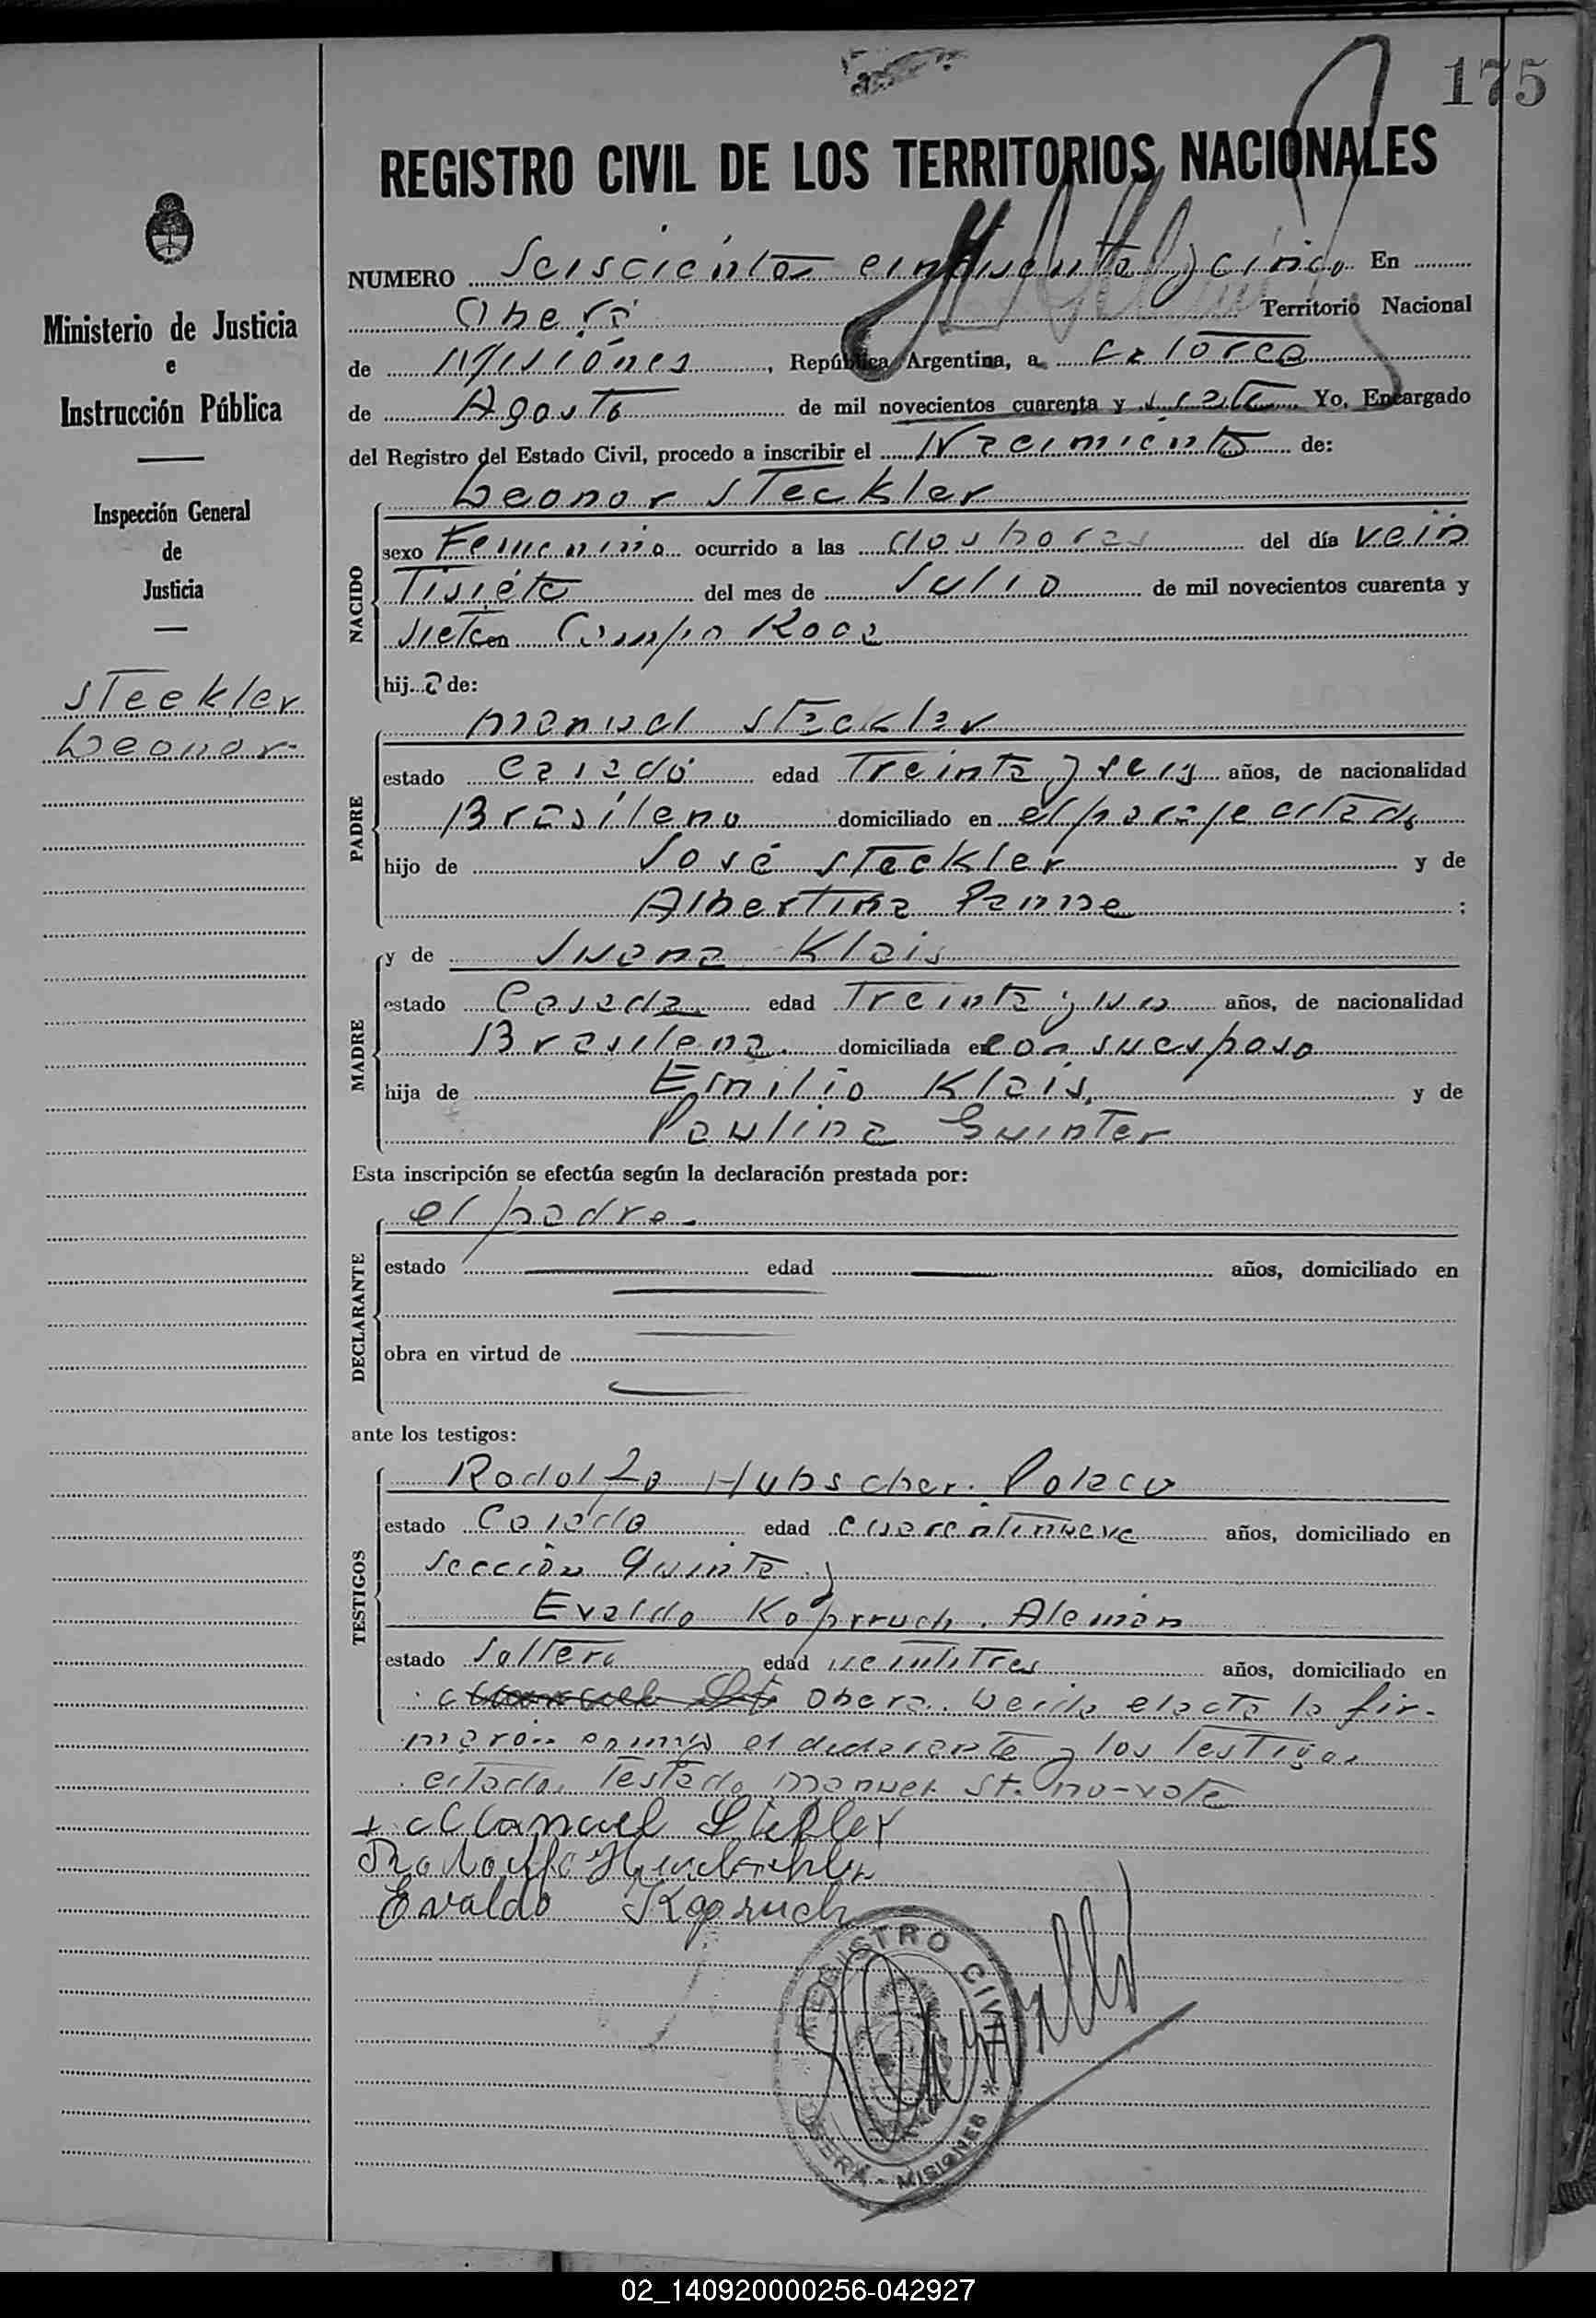 175
REGISTRO CIVIL DE LOS TERRITORIOS NACIONALES
NUMERO Seiscientos cincuenta y cinco En
Oberá Territorio Nacional
de Misiónes, República Argentina, a catorce
de Agosto de mil novecientos cuarenta y siete Yo, Encargado
del Registro del Estado Civil, procedo a inscribir el Nacimiento de:
Ministerio de Justicia
e
Instrucción Pública
Inspección General
de
Justicia
Steckler
Leonor-
NACIDO
Leonor Steckler
sexo Femenino ocurrido a las dos horas del día vein
tisiete del mes de Julio de mil novecientos cuarenta y
siete en Campo Roca
hija de:
PADRE
Manuel Steckler
estado Casado edad Treinta y seis años, de nacionalidad
Brasileno domiciliado en el paraje citado
hijo de José Steckler y de
Albertina Panne ;
MADRE
y de Juana Klais
estado Casada edad Treinta y un años, de nacionalidad
Brasilena domiciliada en con su esposo
hija de Emilio Klais, y de
Paulina Guinter
Esta inscripción se efectúa según la declaración prestada por:
DECLARANTE
el padre-
estado edad años, domiciliado en
obra en virtud de
ante los testigos:
TESTIGOS
Rodolfo Hubscher. Polaco
estado Casado edad cuarentinueve años, domiciliado en
sección quinta y
Evaldo Koprruch. Alemán
estado Soltero edad veintitres años, domiciliado en
Obera. Leida el acta la fir-
maron conmigo el declarante y los testigos
citados Testado Manuel St. no-vale
+ Manuel Stekler
Evaldo Kopruch
REGISTRO CIVIL
OBERÁ - MISIONES
02_140920000256-042927